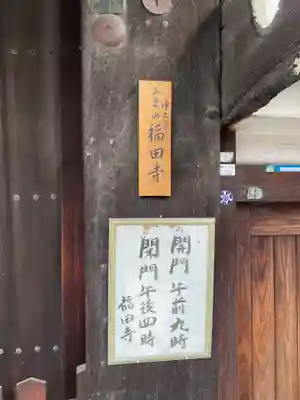 浄土宗
福田寺
開門 午前九時
閉門 午後四時
福田寺